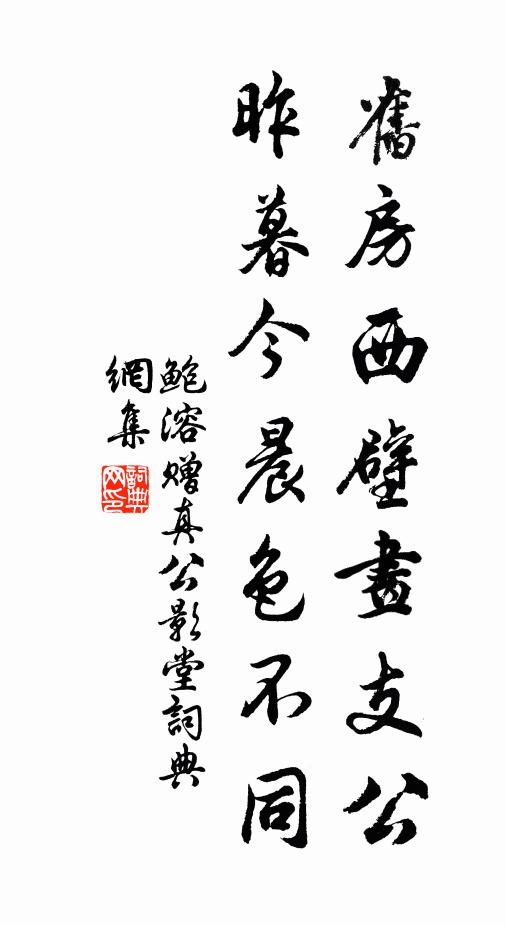 舊房西壁畫支公
昨暮今晨色不同
鮑溶贈真公影堂詞典
網集
詞典網印